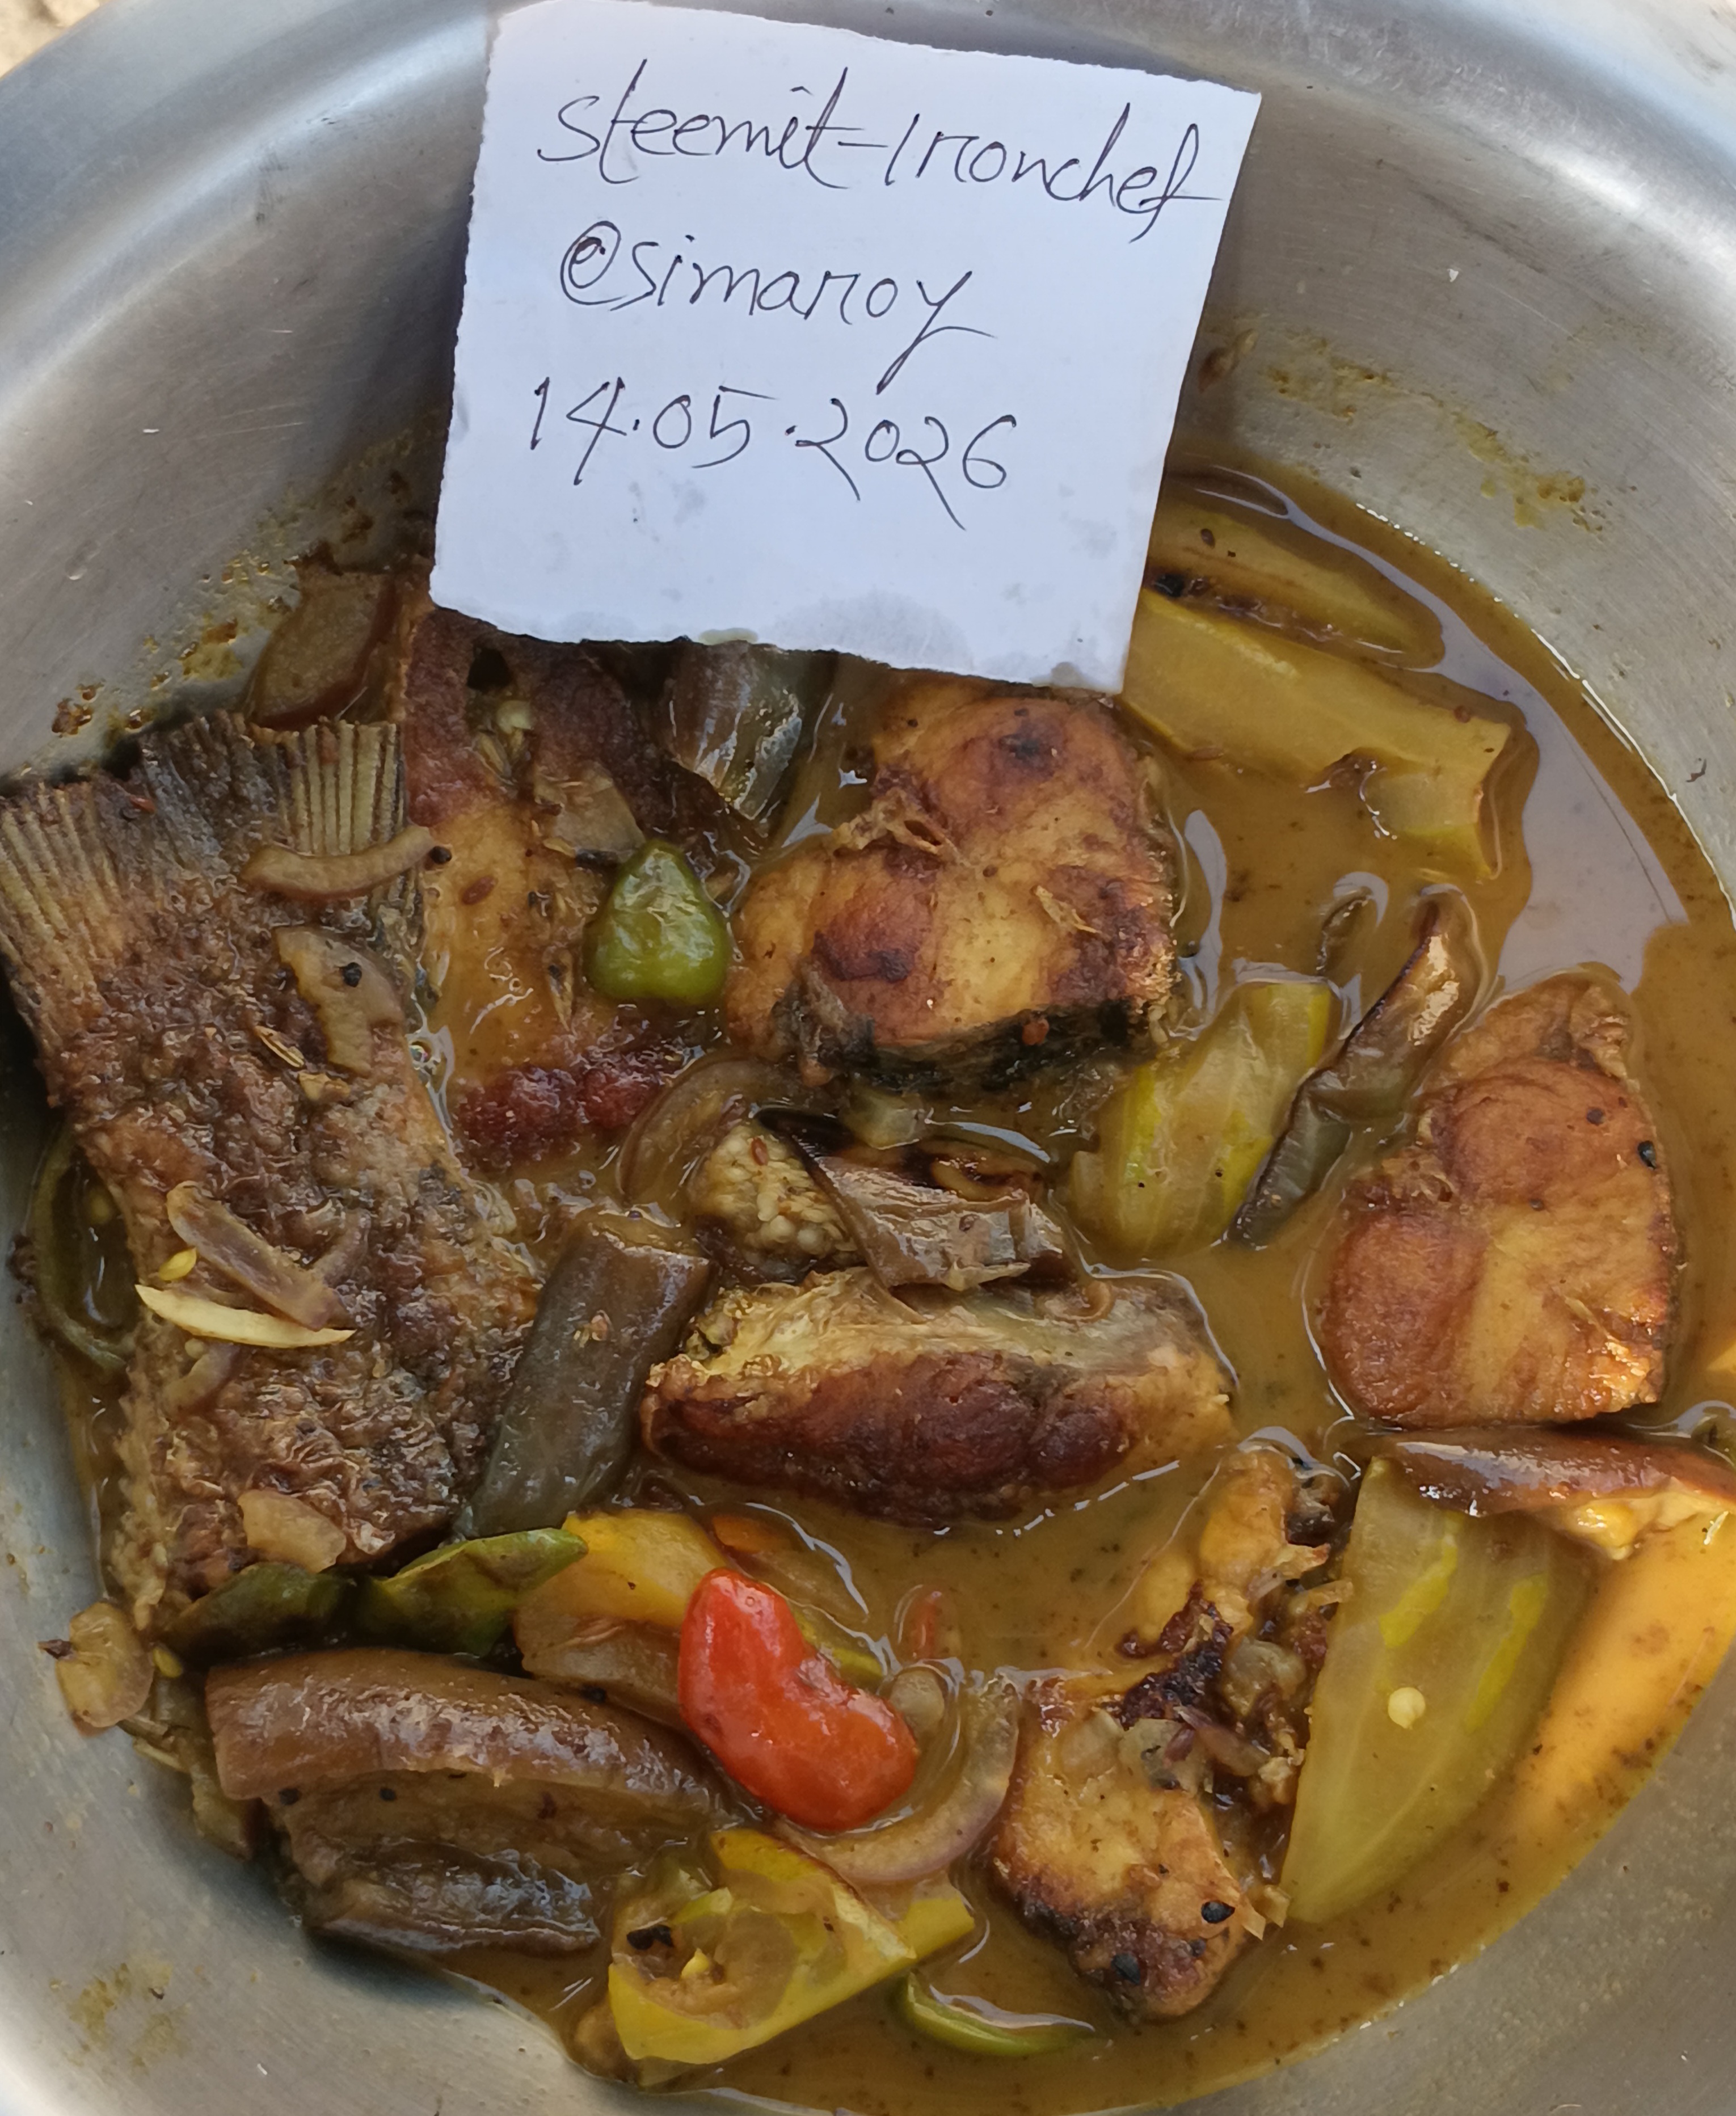 steemit-Ironchef
@simaroy
14.05.2026